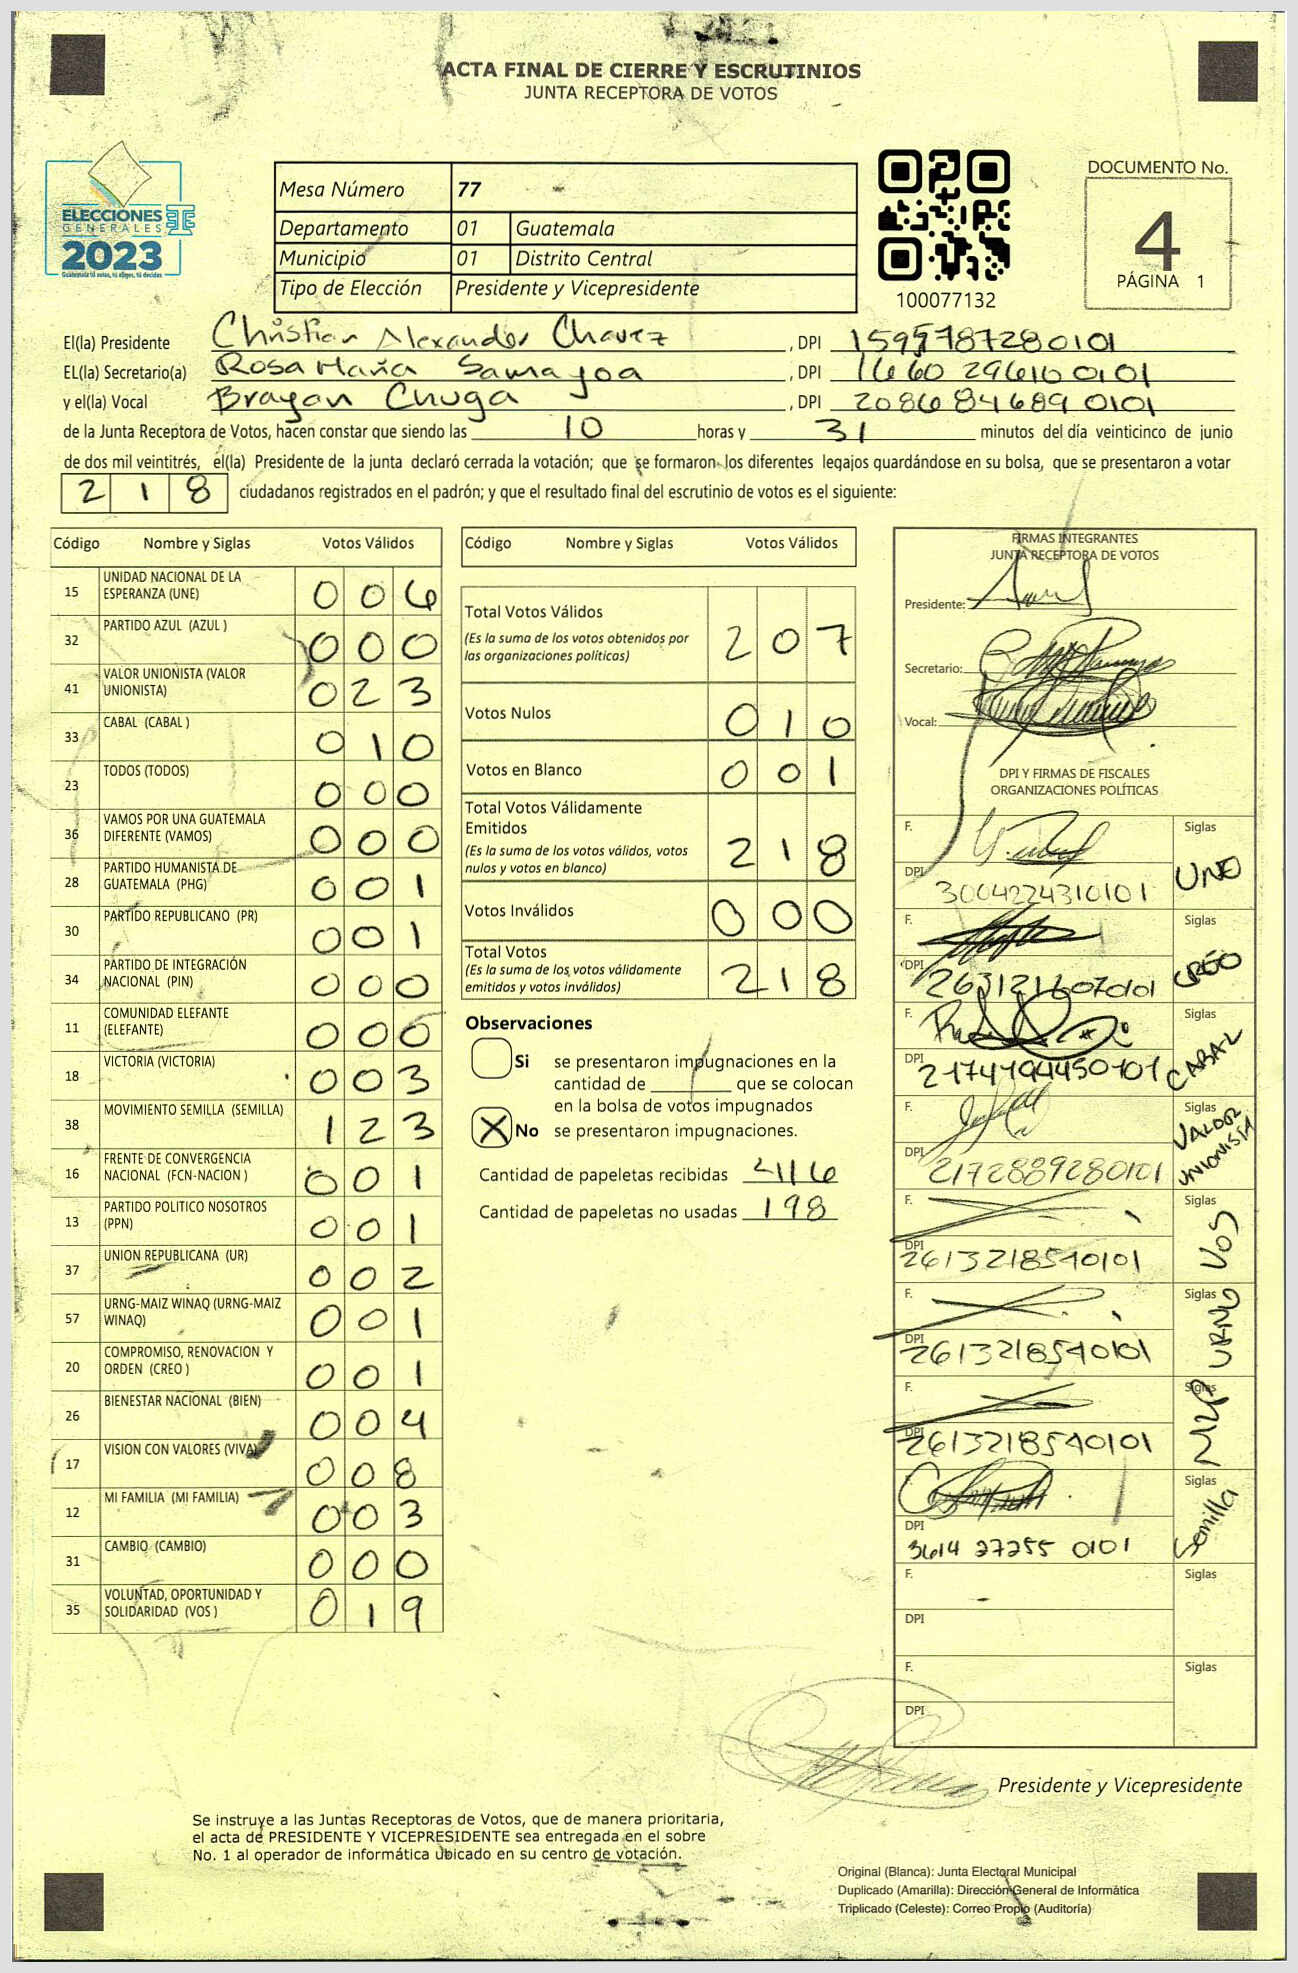 ACTA FINAL DE CIERRE Y ESCRUTINIOS
JUNTA RECEPTORA DE VOTOS
ELECCIONES
GENERALES
2023
Guatemala tú votas, tú eliges, tú decides
Mesa Número 77
Departamento 01 Guatemala
Municipio 01 Distrito Central
Tipo de Elección Presidente y Vicepresidente
100077132
DOCUMENTO No.
4
PÁGINA 1
El(la) Presidente Christian Alexander Chavez , DPI 1595787280101
EL(la) Secretario(a) Rosa Maria Samayoa , DPI 1660 29610 0101
y el(la) Vocal Brayan Chuga , DPI 2086846890101
de la Junta Receptora de Votos, hacen constar que siendo las 10 horas y 31 minutos del día veinticinco de junio
de dos mil veintitrés, el(la) Presidente de la junta declaró cerrada la votación; que se formaron los diferentes legajos guardándose en su bolsa, que se presentaron a votar
218 ciudadanos registrados en el padrón; y que el resultado final del escrutinio de votos es el siguiente:
Código Nombre y Siglas Votos Válidos
15 UNIDAD NACIONAL DE LA ESPERANZA (UNE) 006
32 PARTIDO AZUL (AZUL ) 000
41 VALOR UNIONISTA (VALOR UNIONISTA) 023
33 CABAL (CABAL ) 010
23 TODOS (TODOS) 000
36 VAMOS POR UNA GUATEMALA DIFERENTE (VAMOS) 000
28 PARTIDO HUMANISTA DE GUATEMALA (PHG) 001
30 PARTIDO REPUBLICANO (PR) 001
34 PARTIDO DE INTEGRACIÓN NACIONAL (PIN) 000
11 COMUNIDAD ELEFANTE (ELEFANTE) 000
18 VICTORIA (VICTORIA) 003
38 MOVIMIENTO SEMILLA (SEMILLA) 123
16 FRENTE DE CONVERGENCIA NACIONAL (FCN-NACION ) 001
13 PARTIDO POLITICO NOSOTROS (PPN) 001
37 UNION REPUBLICANA (UR) 002
57 URNG-MAIZ WINAQ (URNG-MAIZ WINAQ) 001
20 COMPROMISO, RENOVACION Y ORDEN (CREO ) 001
26 BIENESTAR NACIONAL (BIEN) 004
17 VISION CON VALORES (VIVA) 008
12 MI FAMILIA (MI FAMILIA) 003
31 CAMBIO (CAMBIO) 000
35 VOLUNTAD, OPORTUNIDAD Y SOLIDARIDAD (VOS ) 019
Código Nombre y Siglas Votos Válidos
Total Votos Válidos 207
(Es la suma de los votos obtenidos por
las organizaciones políticas)
Votos Nulos 010
Votos en Blanco 001
Total Votos Válidamente
Emitidos 218
(Es la suma de los votos válidos, votos
nulos y votos en blanco)
Votos Inválidos 000
Total Votos 218
(Es la suma de los votos válidamente
emitidos y votos inválidos)
Observaciones
Si se presentaron impugnaciones en la
cantidad de que se colocan
en la bolsa de votos impugnados
X No se presentaron impugnaciones.
Cantidad de papeletas recibidas 416
Cantidad de papeletas no usadas 198
FIRMAS INTEGRANTES
JUNTA RECEPTORA DE VOTOS
Presidente:
Secretario:
Vocal:
DPI Y FIRMAS DE FISCALES
ORGANIZACIONES POLÍTICAS
F. Siglas UNE
DPI 3004224310101
F. Siglas CREO
DPI 2631216070101
F. Siglas CABAL
DPI 2174194450101
F. Siglas VALOR UNIONISTA
DPI 2172889280101
F. Siglas VOS
DPI 2613218540101
F. Siglas URNG
DPI 2613218540101
F. Siglas MLP
DPI 2613218540101
F. Siglas Semilla
DPI 3614 27255 0101
F. Siglas
DPI
F. Siglas
DPI
Presidente y Vicepresidente
Se instruye a las Juntas Receptoras de Votos, que de manera prioritaria,
el acta de PRESIDENTE Y VICEPRESIDENTE sea entregada en el sobre
No. 1 al operador de informática ubicado en su centro de votación.
Original (Blanca): Junta Electoral Municipal
Duplicado (Amarilla): Dirección General de Informática
Triplicado (Celeste): Correo Propio (Auditoría)